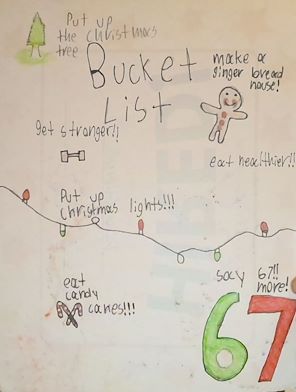 Put up
the christmas
tree
Bucket
List
make a
ginger bread
house!
get stronger!!
eat healthier!!
Put up
christmas lights!!!
eat
candy
canes!!!
say 67!!
more!
67